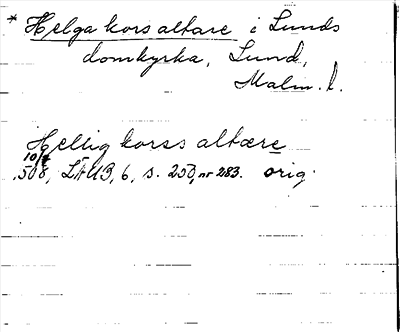 * Helga kors altare i Lunds
domkyrka, Lund,
Malm. l.
Hellig korss altære
10/7
508, LÄUB, 6, s. 250, nr 283. orig.